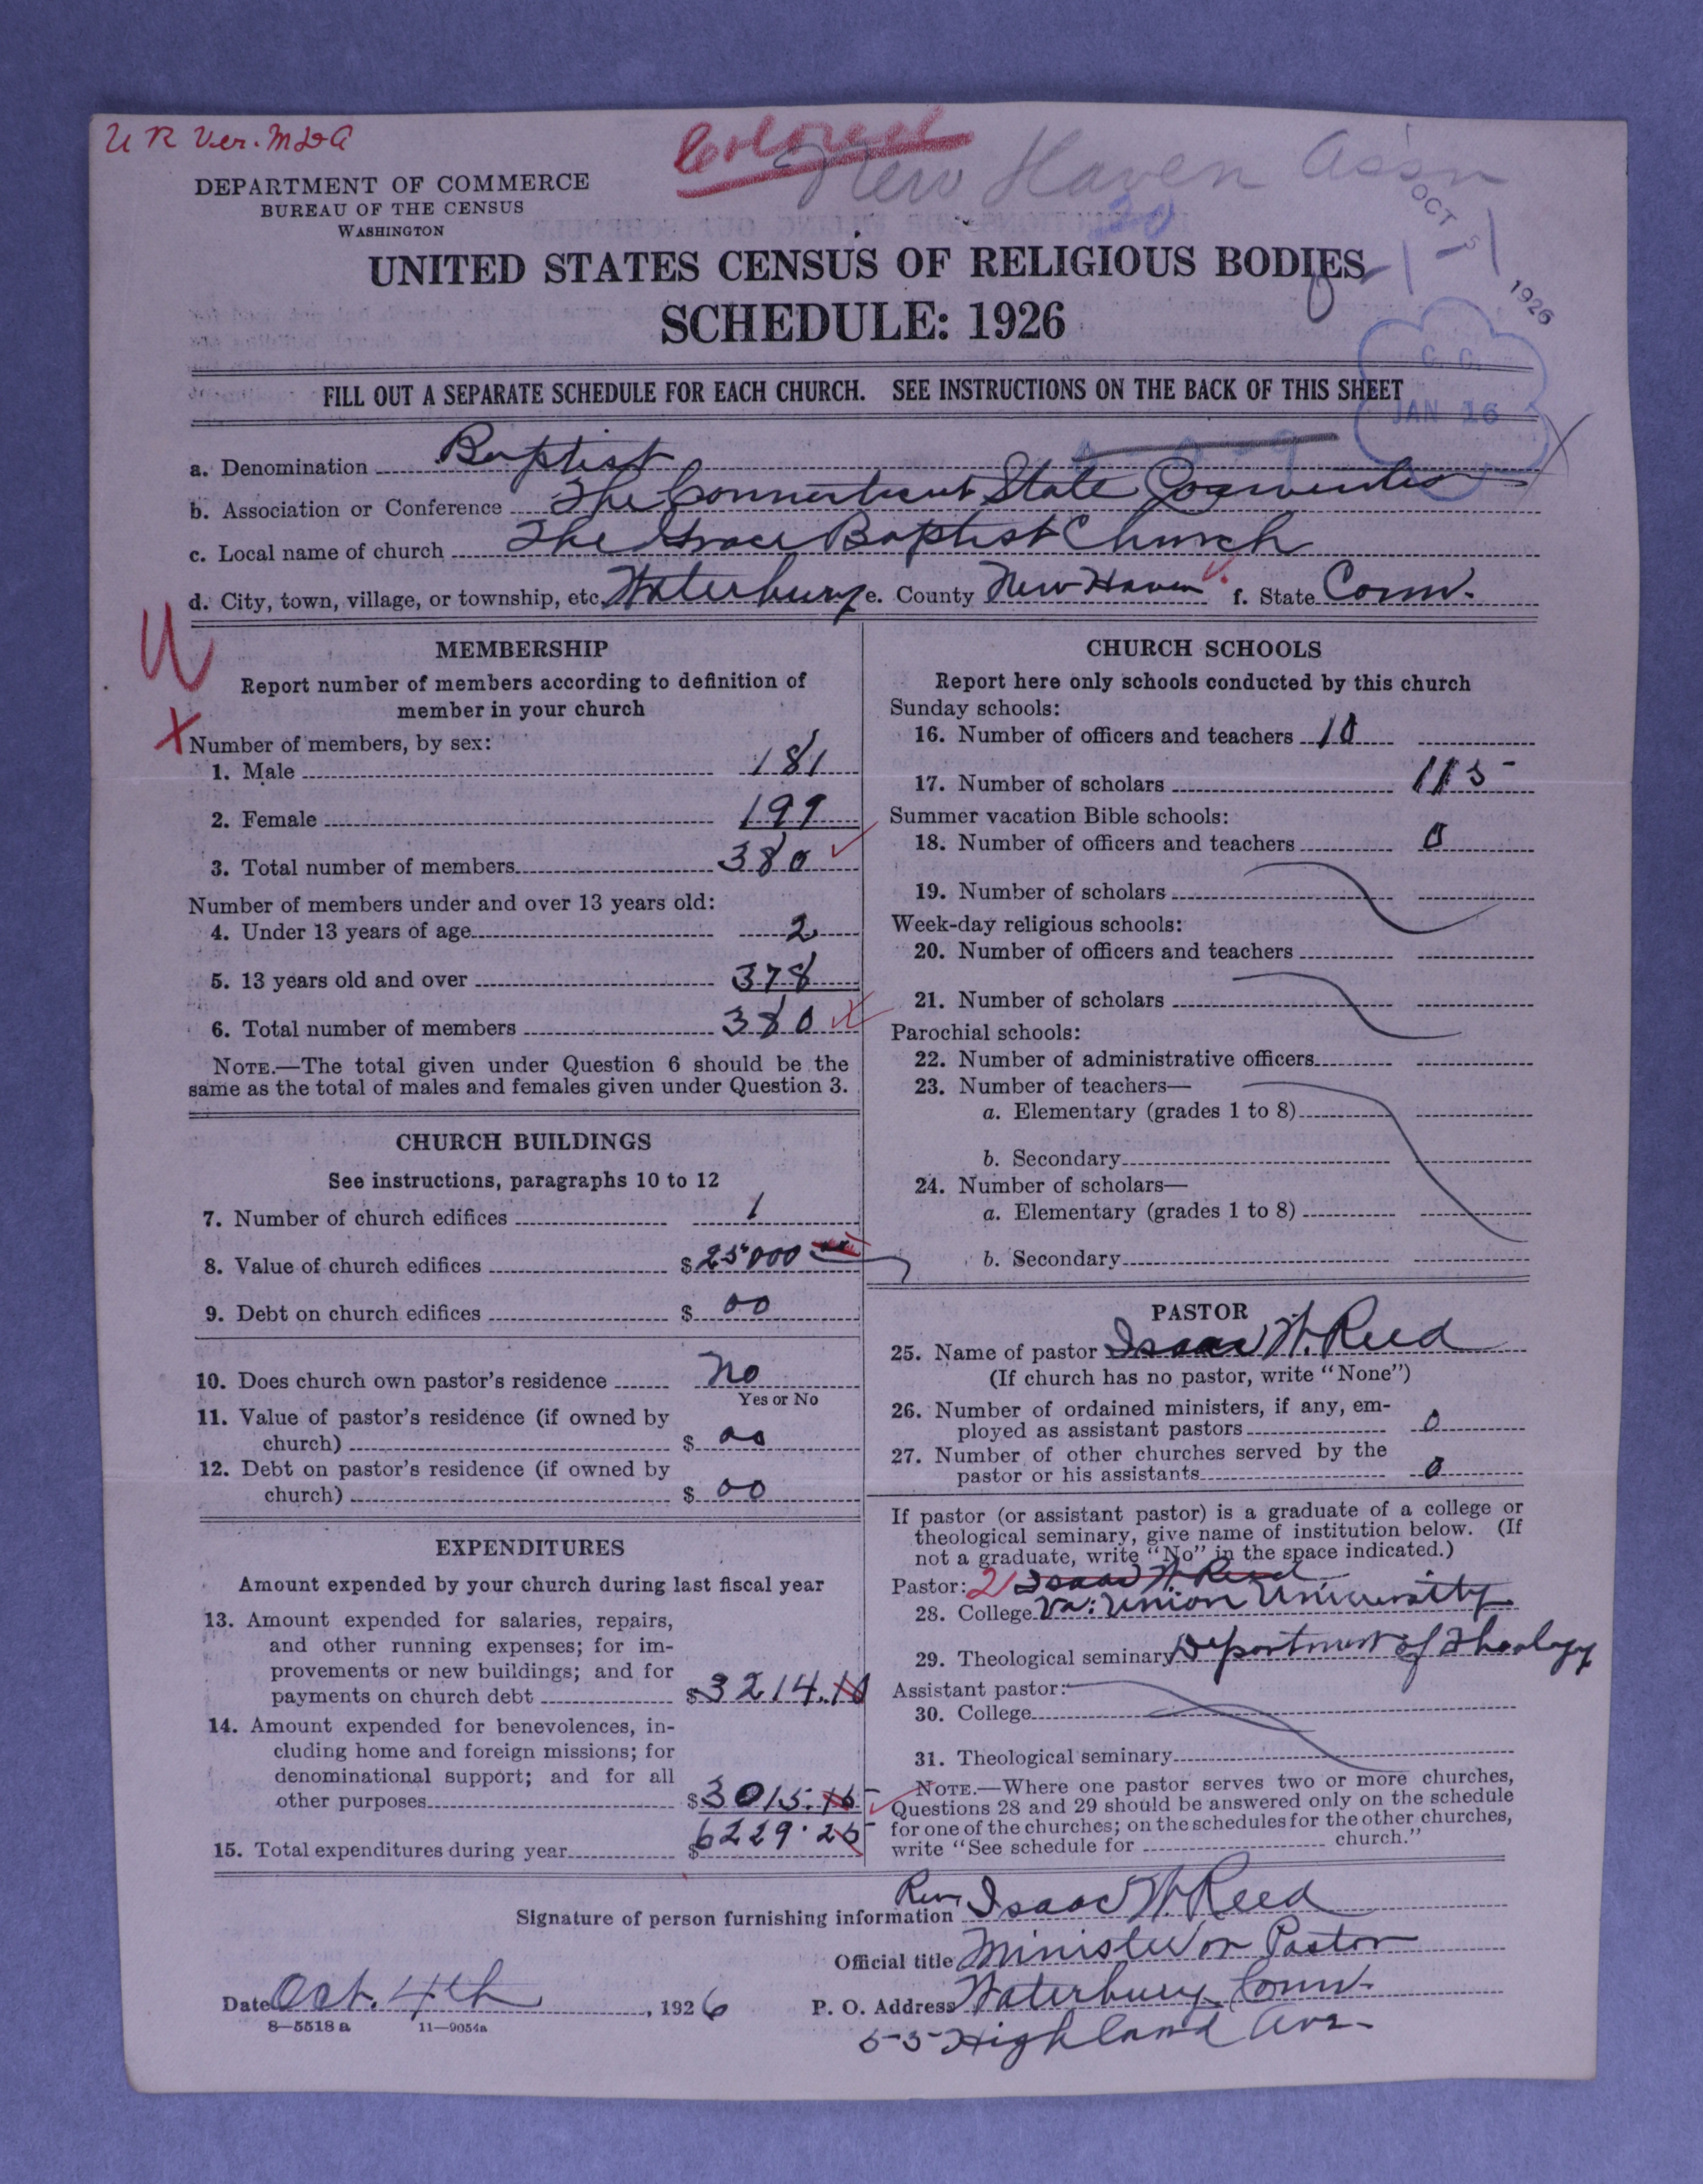 U R Ver. MDA
Colored
New Haven Ass'n
DEPARTMENT OF COMMERCE
BUREAU OF THE CENSUS
WASHINGTON
OCT 5 1926
UNITED STATES CENSUS OF RELIGIOUS BODIES
SCHEDULE: 1926
C. O.
JAN 16
FILL OUT A SEPARATE SCHEDULE FOR EACH CHURCH. SEE INSTRUCTIONS ON THE BACK OF THIS SHEET
a. Denomination Baptist
b. Association or Conference The Connecticut State Convention
c. Local name of church The Grace Baptist Church
d. City, town, village, or township, etc. Waterbury e. County New Haven f. State Conn.
MEMBERSHIP
Report number of members according to definition of
member in your church
Number of members, by sex:
1. Male 181
2. Female 199
3. Total number of members 380
Number of members under and over 13 years old:
4. Under 13 years of age 2
5. 13 years old and over 378
6. Total number of members 380
NOTE.—The total given under Question 6 should be the
same as the total of males and females given under Question 3.
CHURCH BUILDINGS
See instructions, paragraphs 10 to 12
7. Number of church edifices 1
8. Value of church edifices $25000
9. Debt on church edifices $ 00
10. Does church own pastor's residence No
Yes or No
11. Value of pastor's residence (if owned by
church) $ 00
12. Debt on pastor's residence (if owned by
church) $ 00
EXPENDITURES
Amount expended by your church during last fiscal year
13. Amount expended for salaries, repairs,
and other running expenses; for im-
provements or new buildings; and for
payments on church debt $3214.10
14. Amount expended for benevolences, in-
cluding home and foreign missions; for
denominational support; and for all
other purposes $3015.15
15. Total expenditures during year $6229.25
CHURCH SCHOOLS
Report here only schools conducted by this church
Sunday schools:
16. Number of officers and teachers 10
17. Number of scholars 115
Summer vacation Bible schools:
18. Number of officers and teachers 0
19. Number of scholars
Week-day religious schools:
20. Number of officers and teachers
21. Number of scholars
Parochial schools:
22. Number of administrative officers
23. Number of teachers—
a. Elementary (grades 1 to 8)
b. Secondary
24. Number of scholars—
a. Elementary (grades 1 to 8)
b. Secondary
PASTOR
25. Name of pastor Isaac W. Reed
(If church has no pastor, write "None")
26. Number of ordained ministers, if any, em-
ployed as assistant pastors 0
27. Number of other churches served by the
pastor or his assistants 0
If pastor (or assistant pastor) is a graduate of a college or
theological seminary, give name of institution below. (If
not a graduate, write "No" in the space indicated.)
Pastor: 2 Isaac W. Reed
28. College Va. Union University
29. Theological seminary Department of Theology
Assistant pastor:
30. College
31. Theological seminary
NOTE.—Where one pastor serves two or more churches,
Questions 28 and 29 should be answered only on the schedule
for one of the churches; on the schedules for the other churches,
write "See schedule for church."
Signature of person furnishing information Rev. Isaac W. Reed
Official title Minister or Pastor
Date Oct. 4th, 1926 P. O. Address Waterbury Conn.
8—5518a 11—9054a
55 Highland Ave.